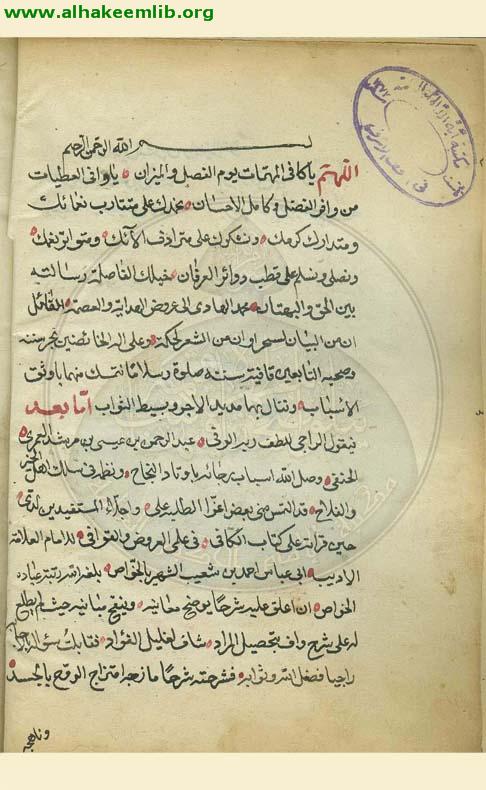 www.alhakeemlib.org
بسم الله الرحمن الرحيم
اللهم يا كافي المهمات يوم الفصل والميزان ويا وافي العطيات
من وافر الفضل وكامل الاحسان نحمدك على متقارب نعمائك
ومتدارك كرمك ونشكرك على مترادف الآئك ومتواتر نعمك
ونصلي ونسلم على قطب دوائر العرفان خليلك الفاصلة رسالته
بين الحق والبهتان محمد الهادي الى عروض الهداية والعصمة القائل
ان من البيان لسحرا وان من الشعر لحكمة وعلى اله الخائضين بحر سننه
وصحبه التابعين قافية سننه صلوة وسلاما نتمسك منهما باوثق
الاسباب وننال بهما مديد الاجر وبسيط الثواب اما بعد
فيقول الراجي للطف ربه الوفي عبد الرحمن بن عيسى بن مرشد العمري
الحنفي وصل الله اسباب رجائه باوتاد النجاح ونظمه في سلك اهل الخير
والفلاح قد التمس مني بعض اعزا الطلبة علي واجلاء المستفيدين لدي
حين قراته علي كتاب الكافي في علمي العروض والقوافي للامام العلامة
الاديب ابي عباس احمد بن شعيب الشهير بالخواص بلغه الله رتبة عباده
الخواص ان اعلق عليه شرحا يوضح معانيه وينقح مبانيه حيث لم يطلع
له على شرح واف بتحصيل المراد شاف لغليل الفؤاد فقابلت سؤاله
راجيا فضل الله وثوابه فشرحته شرحا مازجه امتزاج الروح بالجسد